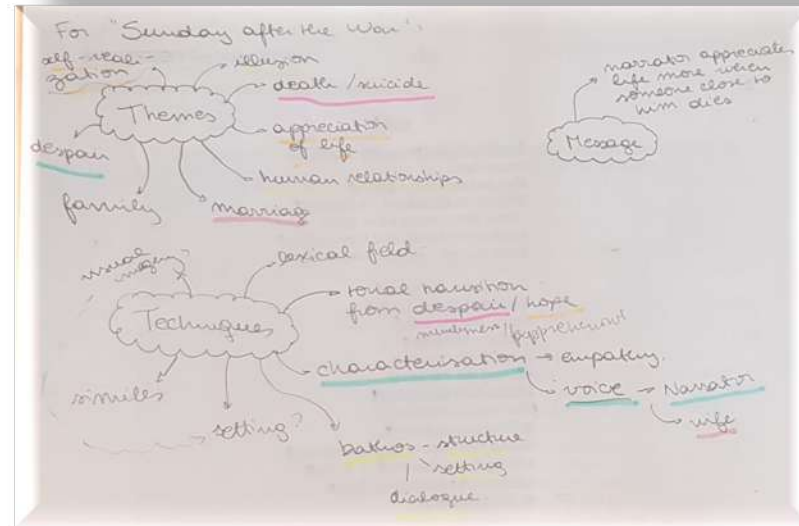 For "Sunday after the War":
self-reali-
zation
illusion
death / suicide
Themes
appreciation
of life
despair
human relationships
family
marriage
narrator appreciates
life more when
someone close to
him dies
Message
visual
imagery
lexical field
tonal transition
from despair / hope
numbness /
Techniques
characterisation → empathy.
voice → Narrator
wife
similes
setting?
bathos - structure
setting
dialogue